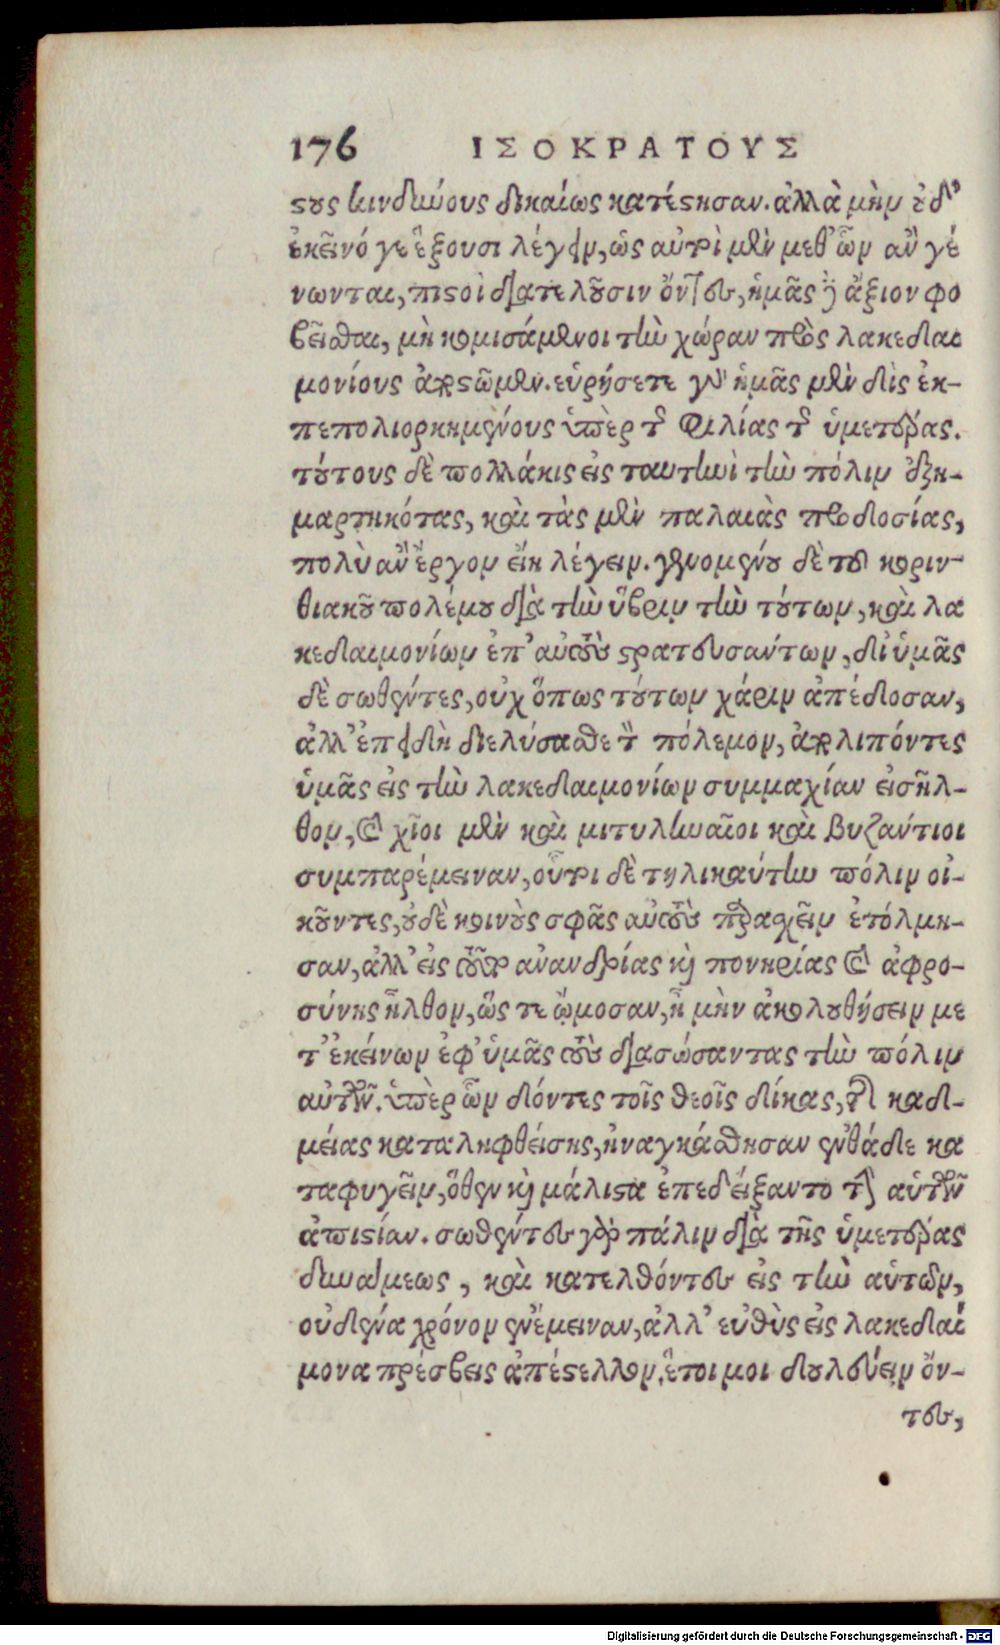 176 ΙΣΟΚΡΑΤΟΥΣ
στους κινδύνους δικαίως κατέστησαν. ἀλλὰ μὴν οὐδ'
ἐκεῖνό γε ἕξουσι λέγειν, ὡς αὐτοὶ μὲν μεθ' ὧν ἂν γέ
νωνται, πιστοὶ διατελοῦσιν ὄντες, ἡμᾶς δὲ ἄξιον φο
βεῖσθαι, μὴ κομισάμενοι τὴν χώραν πρὸς λακεδαι
μονίους ἀποστῶμεν. εὑρήσετε γὰρ ἡμᾶς μὲν δὶς ἐκ-
πεπολιορκημένους ὑπὲρ τῆς φιλίας τῆς ὑμετέρας.
τούτους δὲ πολλάκις εἰς ταυτηνὶ τὴν πόλιν ἐξη-
μαρτηκότας, καὶ τὰς μὲν παλαιὰς προδοσίας,
πολὺ ἂν ἔργον εἴη λέγειν. γενομένου δὲ τοῦ κοριν-
θιακοῦ πολέμου διὰ τὴν ὕβριν τὴν τούτων, καὶ λα
κεδαιμονίων ἐπ' αὐτοὺς στρατευσάντων, δι' ὑμᾶς
δὲ σωθέντες, οὐχ ὅπως τούτων χάριν ἀπέδοσαν,
ἀλλ' ἐπειδὴ διελύσασθε τὸν πόλεμον, ἀπολιπόντες
ὑμᾶς εἰς τὴν λακεδαιμονίων συμμαχίαν εἰσῆλ-
θον, καὶ χῖοι μὲν καὶ μιτυληναῖοι καὶ βυζάντιοι
συμπαρέμειναν, οὗτοι δὲ τηλικαύτην πόλιν οἰ-
κοῦντες, οὐδὲ κοινοὺς σφᾶς αὐτοὺς παρασχεῖν ἐτόλμη-
σαν, ἀλλ' εἰς τοῦτο ἀνανδρίας καὶ πονηρίας καὶ ἀφρο-
σύνης ἦλθον, ὥς τε ὤμοσαν, ἦ μὴν ἀκολουθήσειν με
τ' ἐκείνων ἐφ' ὑμᾶς τοὺς διασώσαντας τὴν πόλιν
αὐτῶν. ὑπὲρ ὧν δόντες τοῖς θεοῖς δίκας, τῆς καδ-
μείας καταληφθείσης, ἠναγκάσθησαν ἐνθάδε κα
ταφυγεῖν, ὅθεν καὶ μάλιστα ἐπεδείξαντο τὴν αὑτῶν
ἀπιστίαν. σωθέντες γὰρ πάλιν διὰ τῆς ὑμετέρας
δυνάμεως, καὶ κατελθόντες εἰς τὴν αὑτῶν,
οὐδένα χρόνον ἐνέμειναν, ἀλλ' εὐθὺς εἰς λακεδαί
μονα πρέσβεις ἀπέστελλον, ἕτοιμοι δουλεύειν ὄν-
τες,
Digitalisierung gefördert durch die Deutsche Forschungsgemeinschaft - DFG